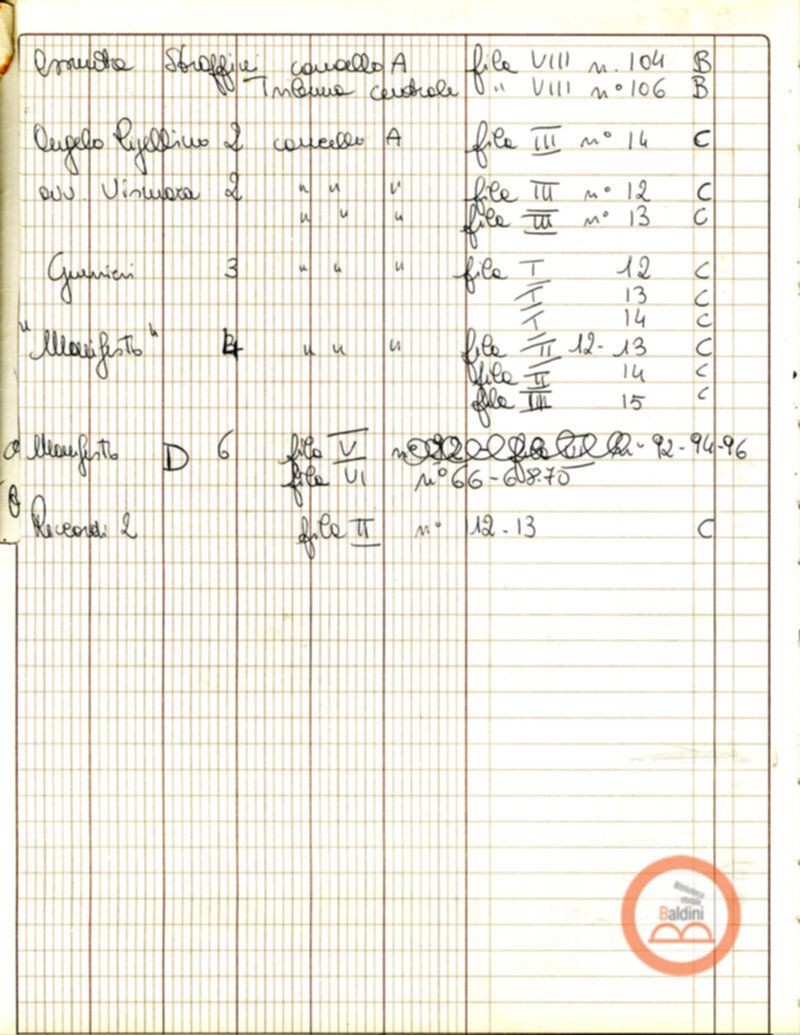 cancello A fila VIII n. 104 B
Tribuna centrale " VIII n° 106 B
Angelo 2 cancello A fila III n° 14 C
avv. Vismara 2 " " " fila III n° 12 C
" " " fila III n° 13 C
3 " " " fila I 12 C
I 13 C
I 14 C
"Manifesto" 4 " " " fila II 12-13 C
fila II 14 C
fila III 15 C
Manifesto D 6 fila V 92-94-96
fila VI n° 66-68-70
Riccardi 2 fila II n° 12-13 C
Biblioteca
statale
Baldini